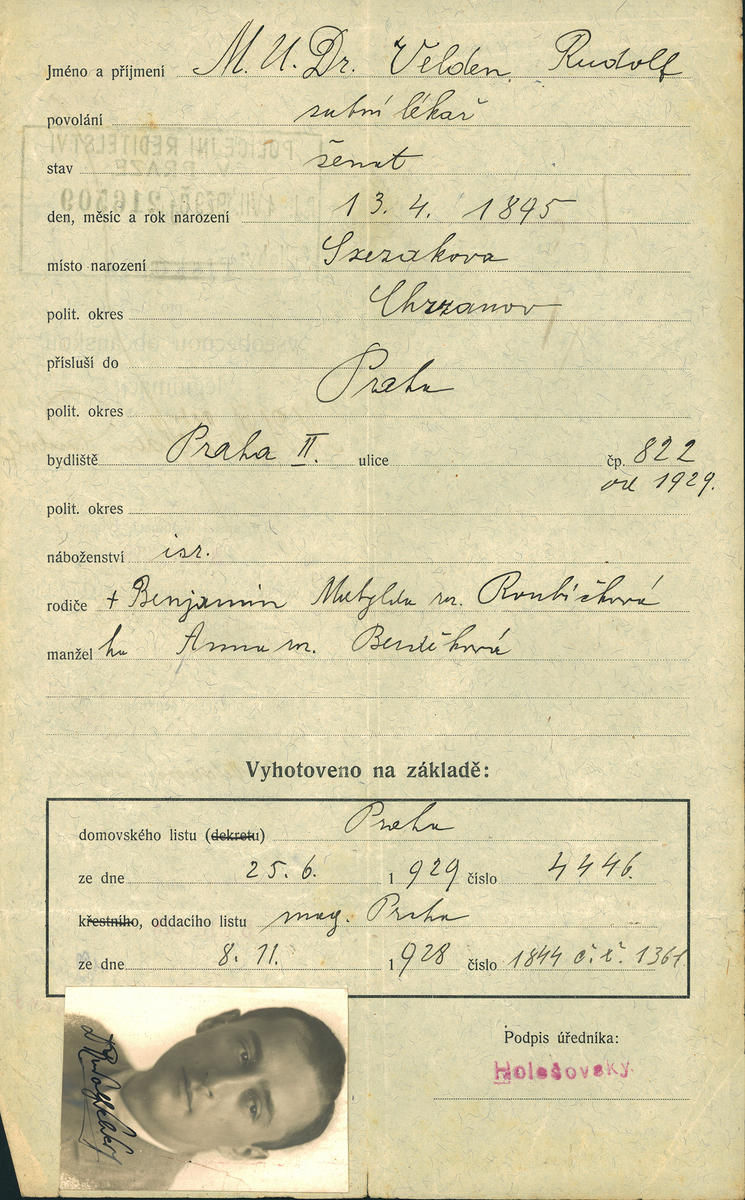 Jméno a příjmení M. U. Dr. Velden Rudolf
povolání zubní lékař
stav ženat
den, měsíc a rok narození 13. 4. 1895
místo narození Szczakova
polit. okres Chrzanov
přísluší do Praha
polit. okres
bydliště Praha II. ulice čp. 822
od 1929.
polit. okres
náboženství isr.
rodiče + Benjamin Matylda roz. Roubíčková
manžel ka Anna roz.
Vyhotoveno na základě:
domovského listu (dekretu) Praha
ze dne 25. 6. 1929 číslo 4446.
křestního, oddacího listu mag. Praha
ze dne 8. 11. 1928 číslo 1844 č. ř. 1361
Podpis úředníka:
Holešovský
POLICEJNÍ ŘEDITELSTVÍ
V PRAZE
216509